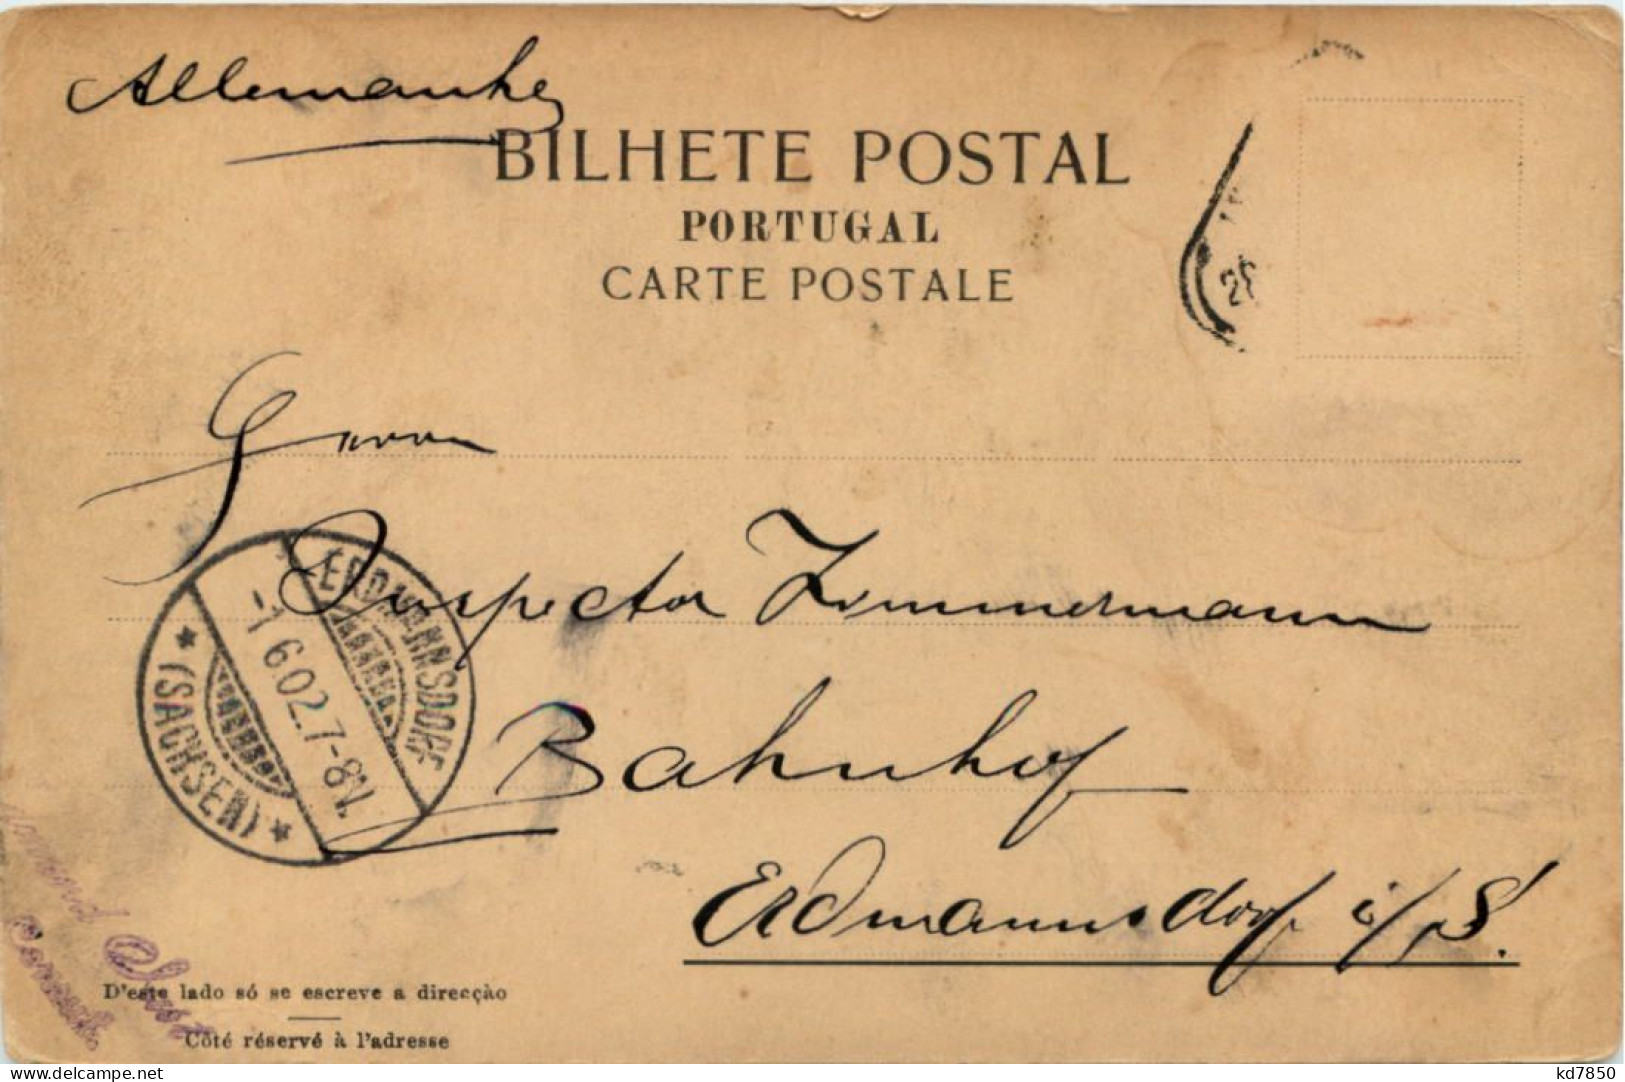 Allemanha
BILHETE POSTAL
PORTUGAL
CARTE POSTALE
Herrn
Inspector Zimmermann
Bahnhof
Erdmannsdorf i/S.
ERDMANNSDORF
-1 6.02.7-8V.
* (SACHSEN) *
D'este lado só se escreve a direcção
Côté réservé à l'adresse
www.delcampe.net
kd7850